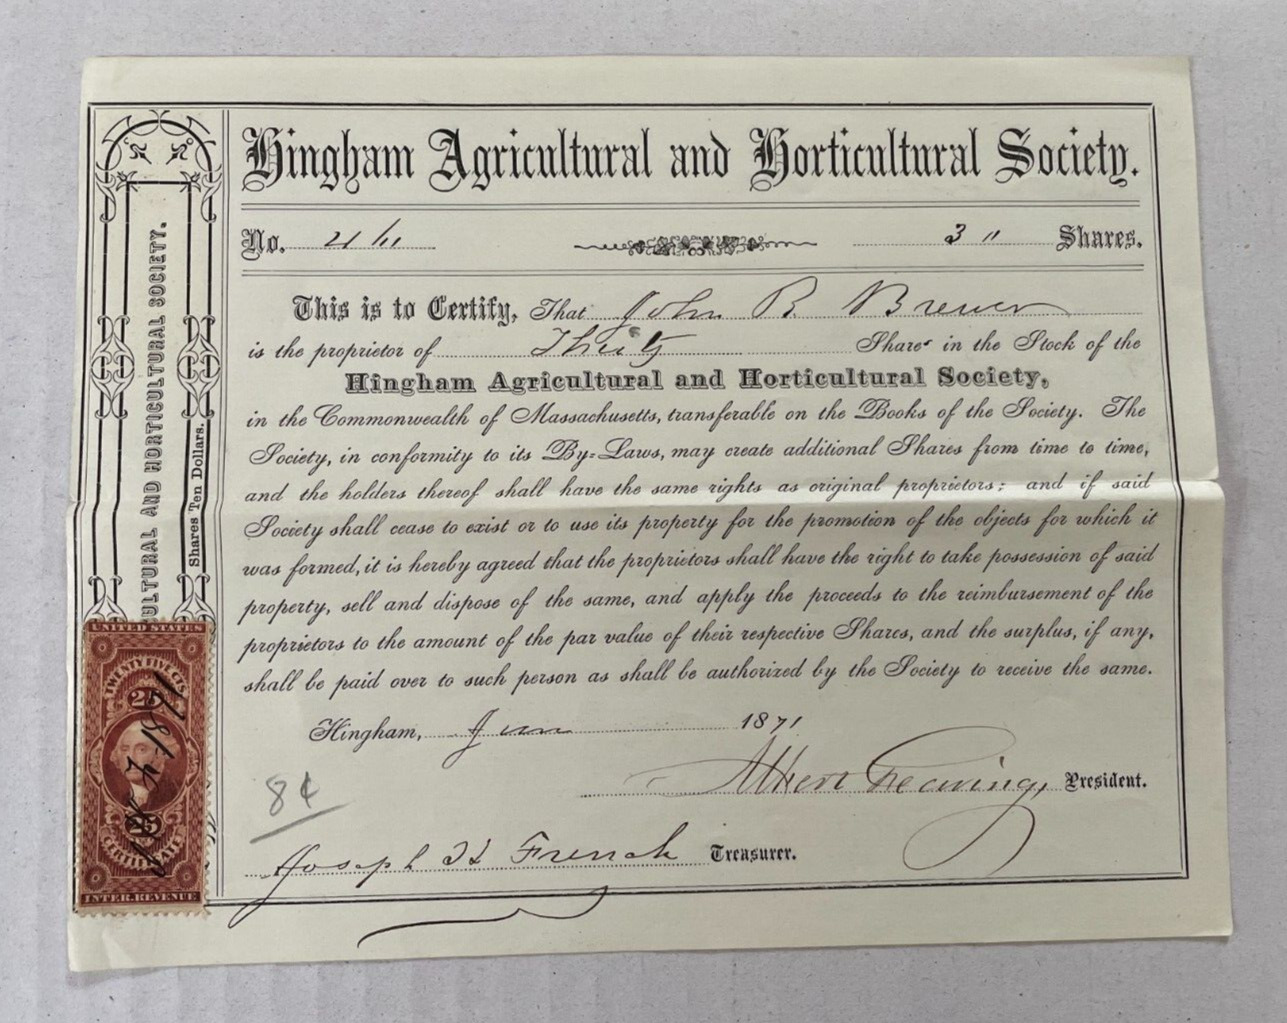 Hingham Agricultural and Horticultural Society.
No.
3 " Shares.
This is to Certify, That John R. Brewer
is the proprietor of Thirty Shares in the Stock of the
Hingham Agricultural and Horticultural Society,
in the Commonwealth of Massachusetts, transferable on the Books of the Society. The
Society, in conformity to its By-Laws, may create additional Shares from time to time,
and the holders thereof shall have the same rights as original proprietors; and if said
Society shall cease to exist or to use its property for the promotion of the objects for which it
was formed, it is hereby agreed that the proprietors shall have the right to take possession of said
property, sell and dispose of the same, and apply the proceeds to the reimbursement of the
proprietors to the amount of the par value of their respective Shares, and the surplus, if any,
shall be paid over to such person as shall be authorized by the Society to receive the same.
Hingham, June 1871
Albert Fearing, President.
8¢
Joseph H French Treasurer.
ULTURAL AND HORTICULTURAL SOCIETY.
Shares Ten Dollars.
UNITED STATES
TWENTY FIVE CTS.
25
25
CERTIFICATE
INTER. REVENUE